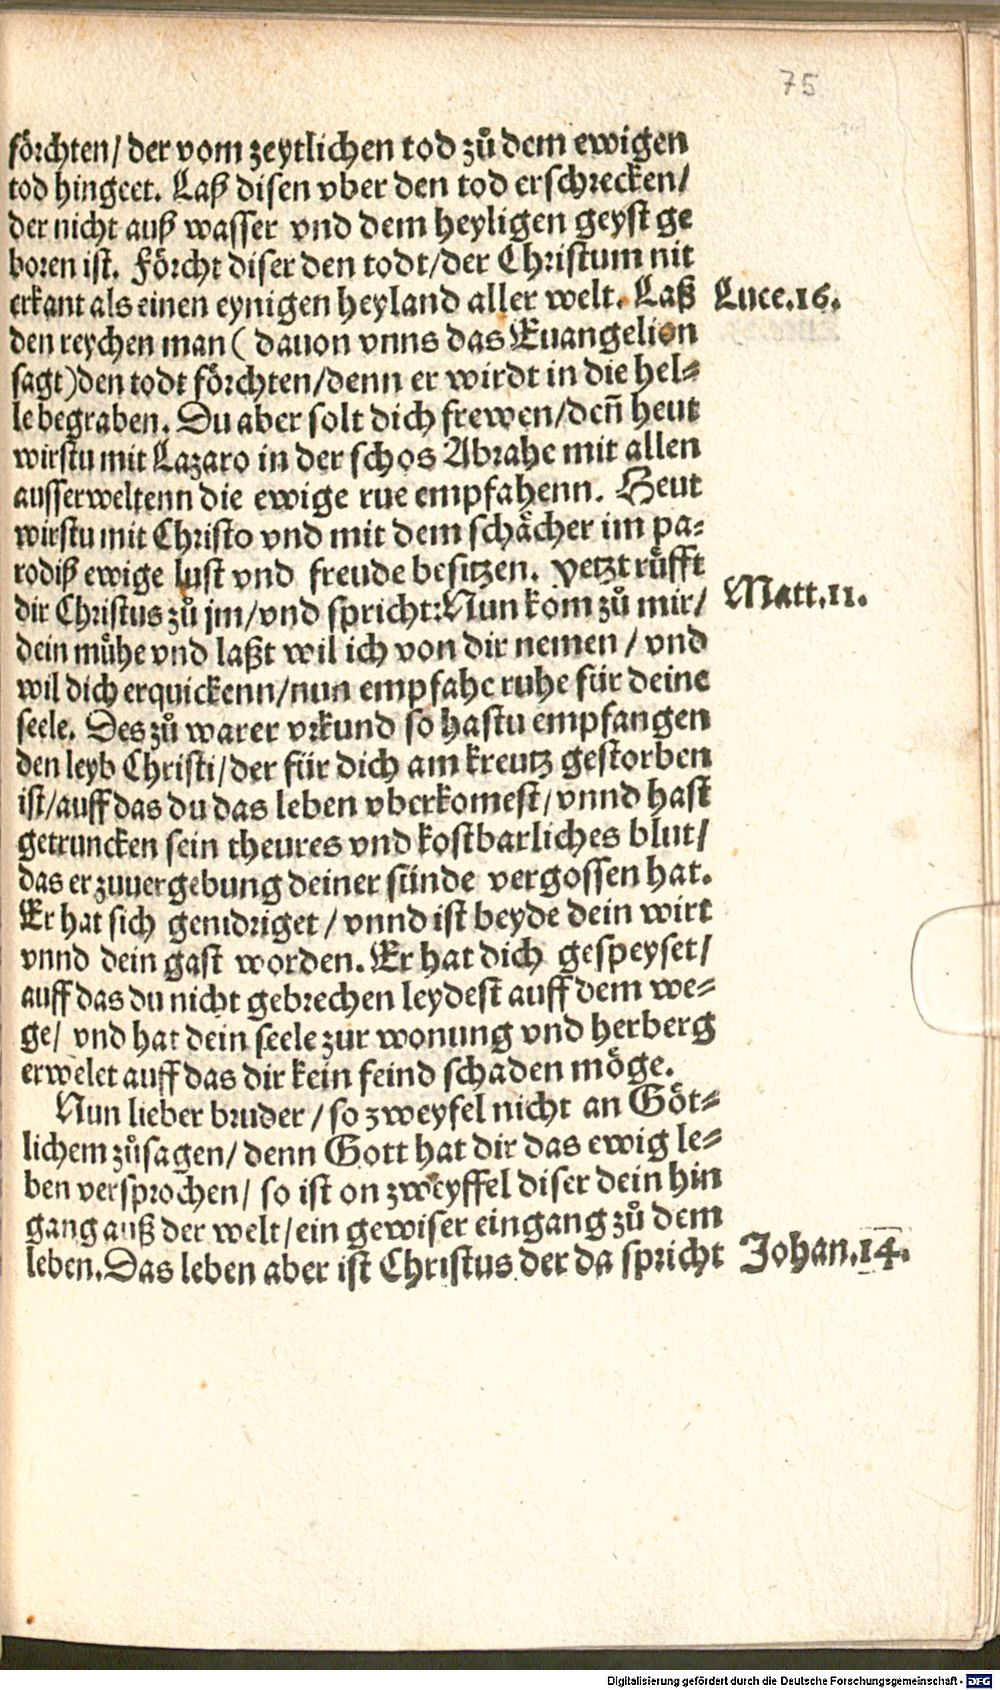 75
förchten/ der vom zeytlichen tod zů dem ewigen
tod hingeet. Laß disen vber den tod erschrecken/
der nicht auß wasser vnd dem heyligen geyst ge
boren ist. Förcht diser den todt/der Christum nit
erkant als einen eynigen heyland aller welt. Laß
Luce.16.
den reychen man ( dauon vnns das Euangelion
sagt)den todt förchten/denn er wirdt in die hel⸗
le begraben. Du aber solt dich frewen/deñ heut
wirstu mit Lazaro in der schos Abrahe mit allen
ausserweltenn die ewige rue empfahenn. Heut
wirstu mit Christo vnd mit dem schächer im pa⸗
rodiß ewige lust vnd freude besitzen. Yetzt růfft
dir Christus zů jm/vnd spricht:Nun kom zů mir/
Matt.11.
dein mühe vnd laßt wil ich von dir nemen / vnd
wil dich erquickenn/nun empfahe ruhe für deine
seele. Des zů warer vrkund so hastu empfangen
den leyb Christi/der für dich am kreutz gestorben
ist/auff das du das leben vberkomest/vnnd hast
getruncken sein theures vnd kostbarliches blut/
das er zuuergebung deiner sünde vergossen hat.
Er hat sich genidriget / vnnd ist beyde dein wirt
vnnd dein gast worden. Er hat dich gespeyset/
auff das du nicht gebrechen leydest auff dem we⸗
ge/ vnd hat dein seele zur wonung vnd herberg
erwelet auff das dir kein feind schaden möge.
Nun lieber bruder / so zweyfel nicht an Göt⸗
lichem zůsagen/ denn Gott hat dir das ewig le⸗
ben versprochen/ so ist on zweyffel diser dein hin
gang auß der welt/ein gewiser eingang zů dem
leben.Das leben aber ist Christus der da spricht
Johan.14.
Digitalisierung gefördert durch die Deutsche Forschungsgemeinschaft - DFG